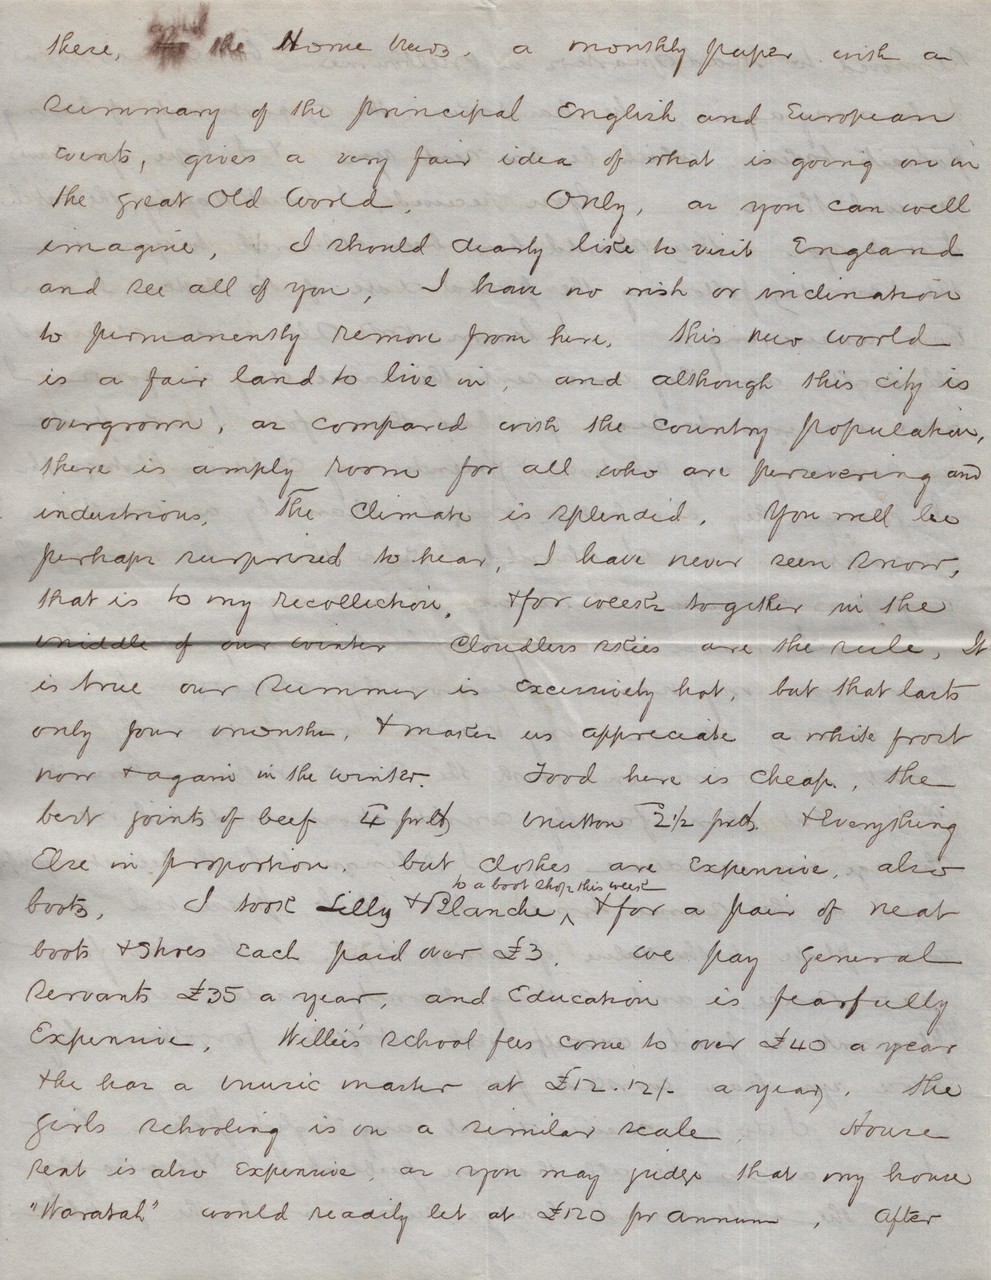 there, and the Home News, a monthly paper with a
summary of the principal English and European
Events, gives a very fair idea of what is going on in
the great Old World. Only, as you can well
imagine, I should dearly like to visit England
and see all of you, I have no wish or inclination
to permanently remove from here. This new world
is a fair land to live in, and although this city is
overgrown, as compared with the country population,
there is amply room for all who are persevering and
industrious. The Climate is splendid. You will be
perhaps surprized to hear, I have never seen snow,
that is to my recollection, & for weeks together in the
middle of our winter Cloudless skies are the rule, It
is true our summer is excessively hot, but that lasts
only four months, & makes us appreciate a white frost
now & again in the winter. Food here is cheap, the
best joints of beef 4d pr lb mutton 2½d pr lb & Everything
Else in proportion. but clothes are expensive, also
boots, I took Lilly & Blanche, & for a pair of neat
to a boot shop this week
boots & Shoes Each paid over £3. we pay general
servants £35 a year, and Education is fearfully
Expensive, Willie's school fees come to over £40 a year
& he has a music master at £12.12/- a year. The
girls schooling is on a similar scale. House
rent is also expensive as you may judge that my house
"Waratah" would readily let at £120 pr annum, After